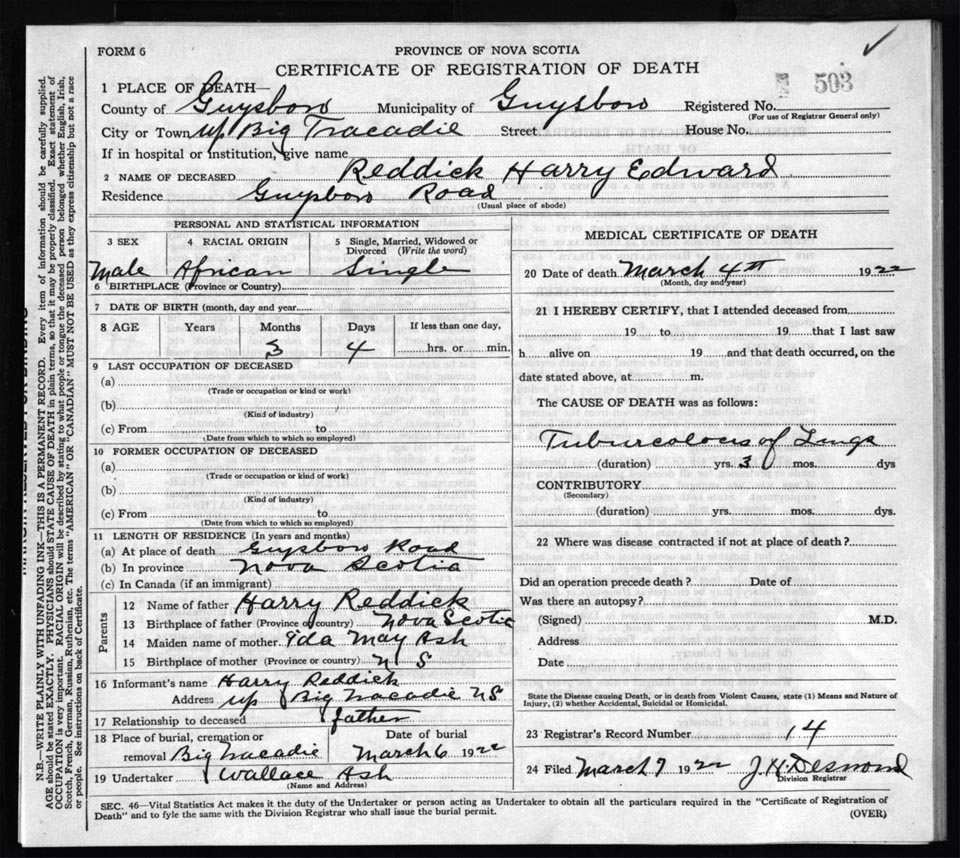 FORM 6
PROVINCE OF NOVA SCOTIA
CERTIFICATE OF REGISTRATION OF DEATH
503
1 PLACE OF DEATH—
County of Guysboro Municipality of Guysboro Registered No.
(For use of Registrar General only)
City or Town Up Big Tracadie Street House No.
If in hospital or institution, give name
2 NAME OF DECEASED Reddick Harry Edward
Residence Guysboro Road
(Usual place of abode)
PERSONAL AND STATISTICAL INFORMATION
3 SEX 4 RACIAL ORIGIN 5 Single, Married, Widowed or Divorced (Write the word)
Male African Single
6 BIRTHPLACE (Province or Country)
7 DATE OF BIRTH (month, day and year)
8 AGE Years Months Days If less than one day,
3 4 hrs. or min.
9 LAST OCCUPATION OF DECEASED
(a)
(Trade or occupation or kind or work)
(b)
(Kind of industry)
(c) From to
(Date from which to which employed)
10 FORMER OCCUPATION OF DECEASED
(a)
(Trade or occupation or kind of work)
(b)
(Kind of industry)
(c) From to
(Date from which to which so employed)
11 LENGTH OF RESIDENCE (In years and months)
(a) At place of death Guysboro Road
(b) In province Nova Scotia
(c) In Canada (if an immigrant)
Parents
12 Name of father Harry Reddick
13 Birthplace of father (Province or country) Nova Scotia
14 Maiden name of mother Ida May Ash
15 Birthplace of mother (Province or country) N S
16 Informant's name Harry Reddick
Address Up Big Tracadie NS
17 Relationship to deceased father
18 Place of burial, cremation or removal Date of burial
Big Tracadie March 6 1922
19 Undertaker Wallace Ash
(Name and Address)
MEDICAL CERTIFICATE OF DEATH
20 Date of death March 4th 1922
(Month, day and year)
21 I HEREBY CERTIFY, that I attended deceased from
19 to 19 that I last saw
h alive on 19 and that death occurred, on the
date stated above, at m.
The CAUSE OF DEATH was as follows:
Tuburcolocis of Lungs
(duration) yrs. 3 mos. dys
CONTRIBUTORY
(Secondary)
(duration) yrs. mos. dys.
22 Where was disease contracted if not at place of death?
Did an operation precede death? Date of
Was there an autopsy?
(Signed) M.D.
Address
Date
State the Disease causing Death, or in death from Violent Causes, state (1) Means and Nature of
Injury, (2) whether Accidental, Suicidal or Homicidal.
23 Registrar's Record Number 14
24 Filed March 7 1922 J. H. Desmond
Division Registrar
SEC. 46—Vital Statistics Act makes it the duty of the Undertaker or person acting as Undertaker to obtain all the particulars required in the "Certificate of Registration of
Death" and to fyle the same with the Division Registrar who shall issue the burial permit.
(OVER)
N.B.—WRITE PLAINLY WITH UNFADING INK—THIS IS A PERMANENT RECORD. Every item of information should be carefully supplied.
AGE should be stated EXACTLY. PHYSICIANS should STATE CAUSE OF DEATH in plain terms, so that it may be properly classified. Exact statement of
OCCUPATION is very important. RACIAL ORIGIN will be described by stating to what people or tongue the deceased person belonged whether English, Irish,
Scotch, French, German, Russian, Ruthenian, etc. The terms "AMERICAN" or "CANADIAN" MUST NOT BE USED as they express citizenship but not a race
or people. See instructions on back of Certificate.